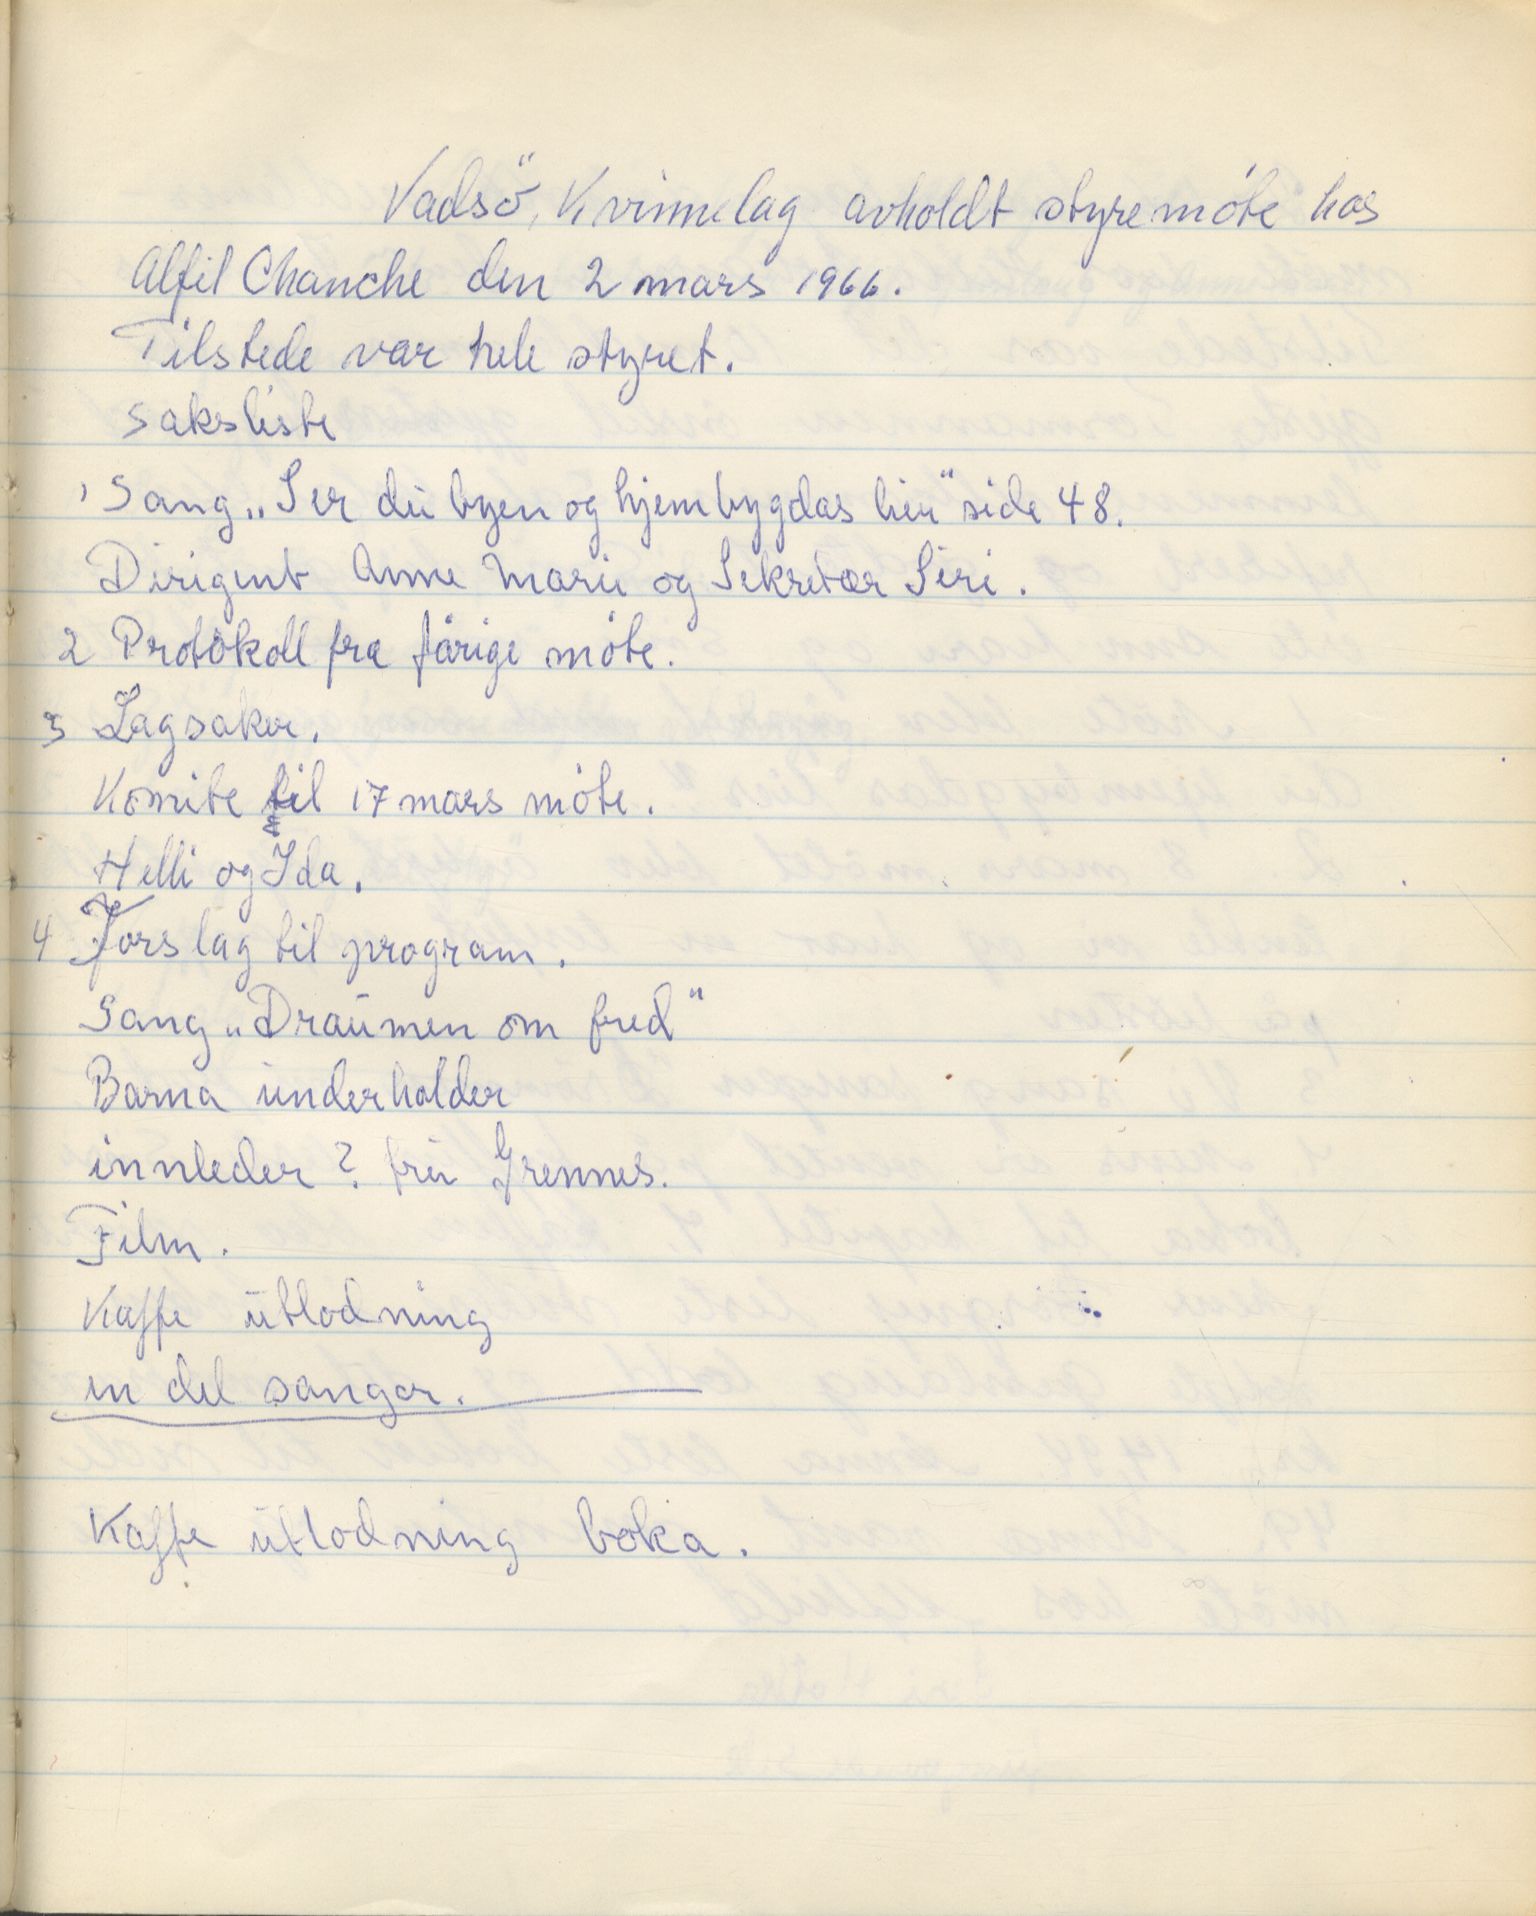 Vadsö, Kvinnelag avholdt styremöte hos
Alfil Chanche den 2 mars 1966.
Tilstede var hele styret.
Saksliste
1 Sang „Ser du byen og hjembygdas lien" side 48.
Dirigent Anne Marie og Sekretær Siri.
2 Protokoll fra förige möte.
3 Lagsaker.
Komite til 17 mars möte.
Helli og Ida.
4 Forslag til program.
Sang „Draumen om fred"
Barna underholder
innleder? fru Grennes.
Film.
Kaffe utlodning
en del sanger.
Kaffe utlodning boka.